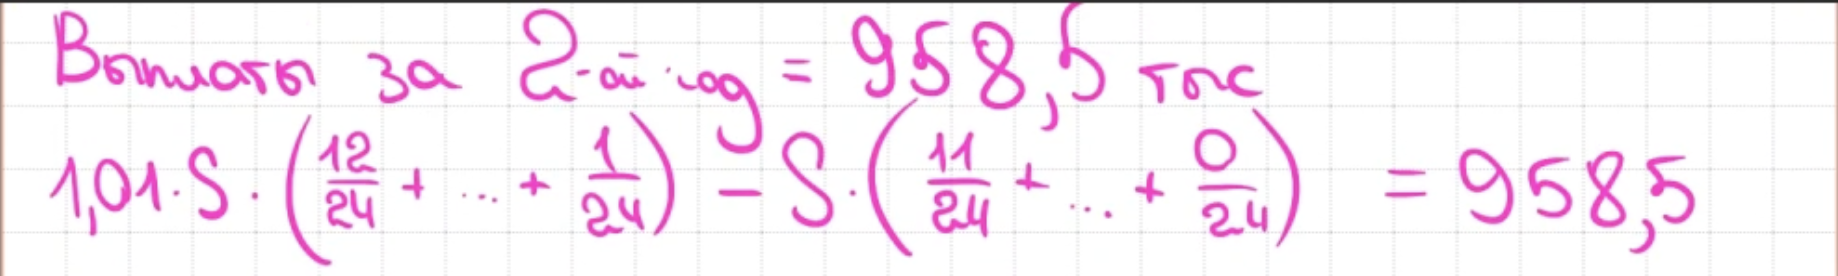 Выплаты за 2-ой год = 958,5 тыс
1,01·S·(12/24 + ... + 1/24) - S·(11/24 + ... + 0/24) = 958,5